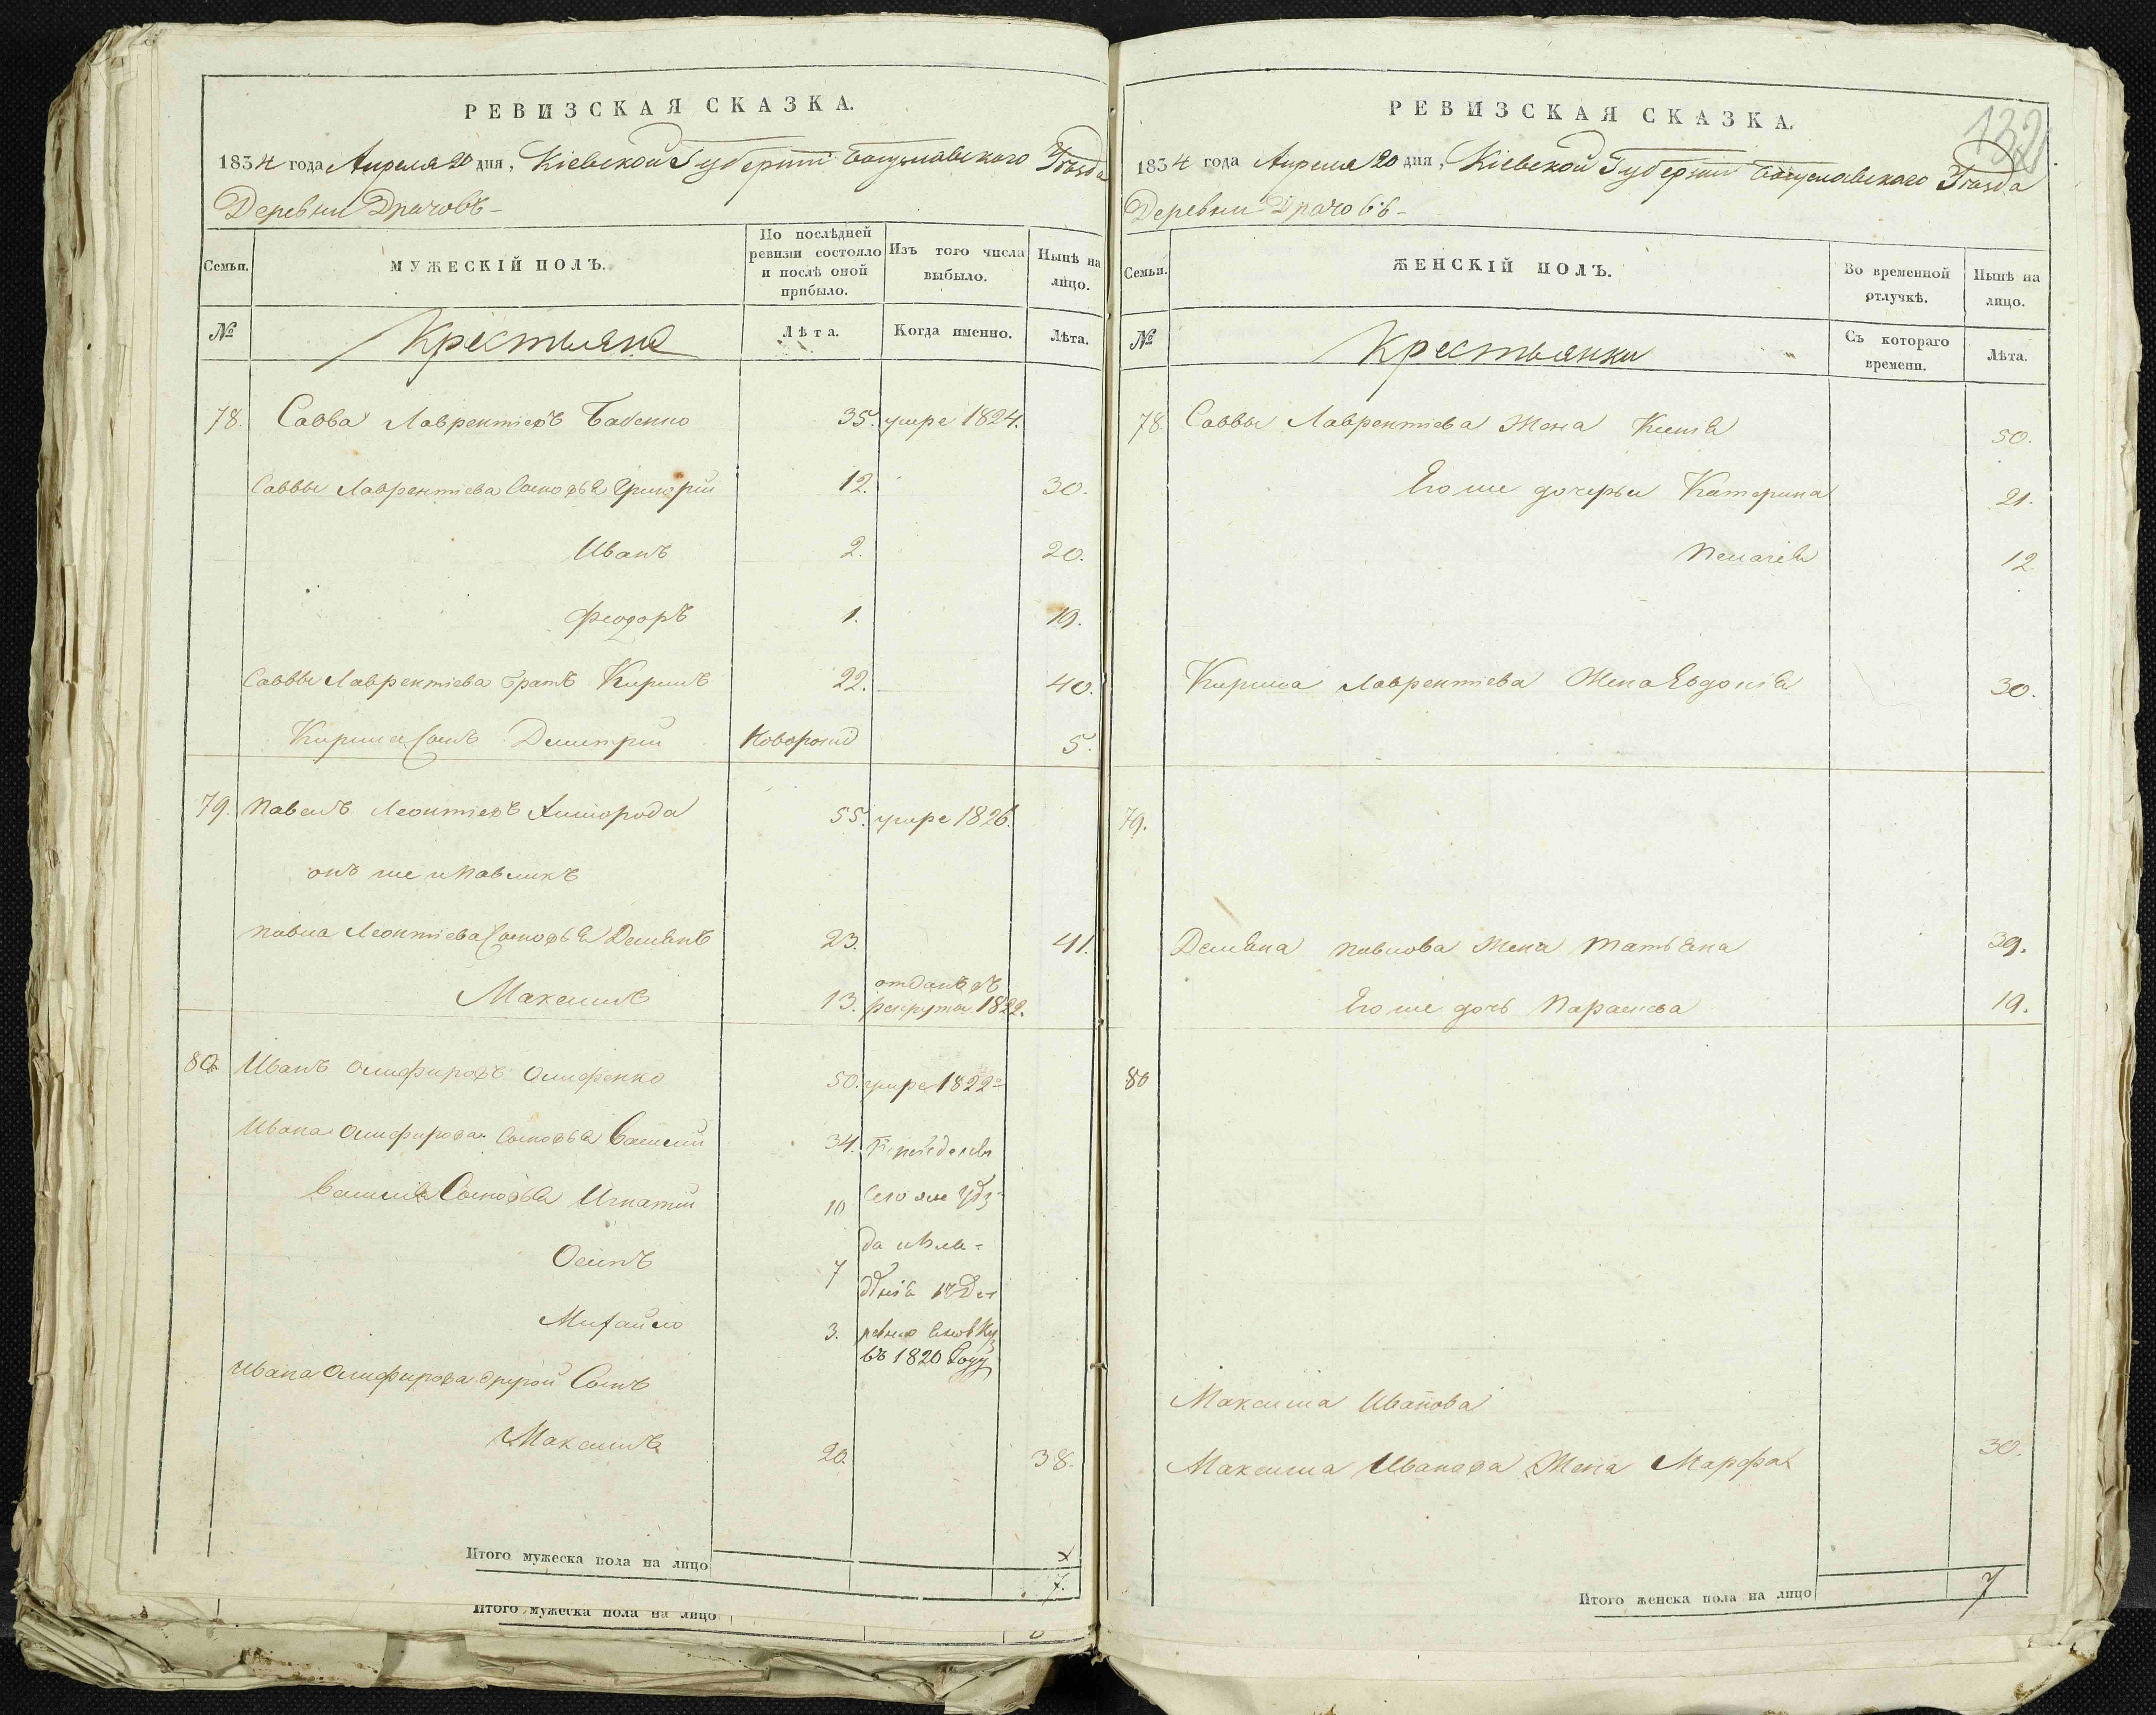 РЕВИЗСКАЯ СКАЗКА.
1834 года Апреля 20 дня, Кіевской Губерніи Богуславскаго Уѣзда
Деревни Драчовъ
Семьи.
МУЖЕСКІЙ ПОЛЪ.
По послѣдней ревизіи состояло и послѣ оной прибыло.
Изъ того числа выбыло.
Нынѣ на лицо.
№
Крестьяне
Лѣта.
Когда именно.
Лѣта.
78. Савва Лаврентіевъ Бабенко 35. умре 1824.
Саввы Лаврентіева Сыновья Григорій 12. 30.
Иванъ 2. 20.
Феодоръ 1. 19.
Саввы Лаврентіева братъ Кирилъ 22. 40.
Кирила Сынъ Димитрий Новорожд 5.
79. Павелъ Леонтіевъ 55. умре 1826.
онъ же и Павликъ
Павла Леонтіева Сыновья Демянъ 23. 41.
Максимъ 13. отданъ въ рекруты 1822.
80 Иванъ Олифировъ Олифенко 50. умре 1822
Ивана Олифирова Сыновья Василій 34.
Василія Сыновья Игнатій 10
Осипъ 7
Михайло 3.
въ 1820 Году
Ивана Олифирова другой Сынъ
Максимъ 20 38.
Итого мужеска пола на лицо 7.
Итого мужеска пола на лицо
РЕВИЗСКАЯ СКАЗКА.
132
1834 года Апреля 20 дня, Кіевской Губерніи Богуславскаго Уѣзда
Деревни Драчовъ
Семьи.
ЖЕНСКІЙ ПОЛЪ.
Во временной отлучкѣ.
Нынѣ на лицо.
№
Крестьянки
Съ котораго времени.
Лѣта.
78. Саввы Лаврентіева Жена 50.
Его же дочерьи Катерина 21.
Пелагія 12
Кирила Лаврентіева Жена Евдокія 30.
79.
Демяна Павлова Жена Татьяна 39.
Его же дочь Параскева 19.
80
Максима Иванова
Максима Иванова Жена Марфа 30.
Итого женска пола на лицо 7